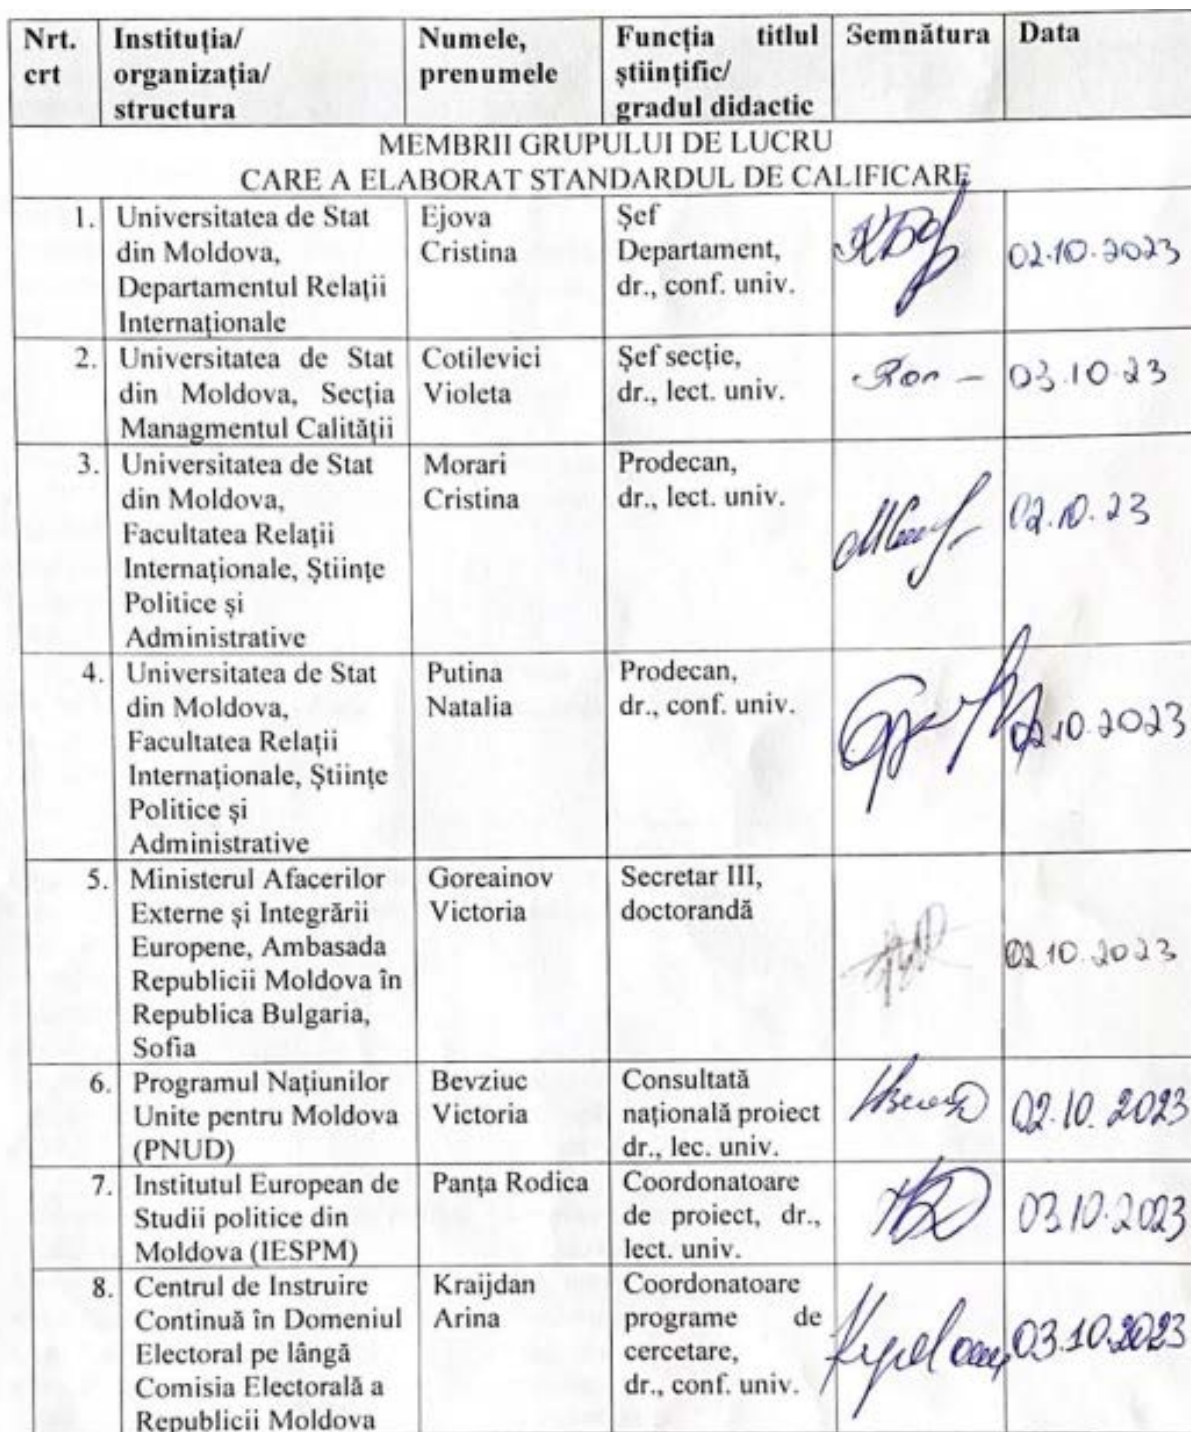 Nrt. crt
Instituția/ organizația/ structura
Numele, prenumele
Funcția titlul științific/ gradul didactic
Semnătura
Data
MEMBRII GRUPULUI DE LUCRU
CARE A ELABORAT STANDARDUL DE CALIFICARE
1.
Universitatea de Stat
din Moldova,
Departamentul Relații
Internaționale
Ejova
Cristina
Șef
Departament,
dr., conf. univ.
02.10.2023
2.
Universitatea de Stat
din Moldova, Secția
Managmentul Calității
Cotilevici
Violeta
Șef secție,
dr., lect. univ.
03.10.23
3.
Universitatea de Stat
din Moldova,
Facultatea Relații
Internaționale, Științe
Politice și
Administrative
Morari
Cristina
Prodecan,
dr., lect. univ.
02.10.23
4.
Universitatea de Stat
din Moldova,
Facultatea Relații
Internaționale, Științe
Politice și
Administrative
Putina
Natalia
Prodecan,
dr., conf. univ.
02.10.2023
5.
Ministerul Afacerilor
Externe și Integrării
Europene, Ambasada
Republicii Moldova în
Republica Bulgaria,
Sofia
Goreainov
Victoria
Secretar III,
doctorandă
02.10.2023
6.
Programul Națiunilor
Unite pentru Moldova
(PNUD)
Bevziuc
Victoria
Consultată
națională proiect
dr., lec. univ.
02.10.2023
7.
Institutul European de
Studii politice din
Moldova (IESPM)
Panța Rodica
Coordonatoare
de proiect, dr.,
lect. univ.
03.10.2023
8.
Centrul de Instruire
Continuă în Domeniul
Electoral pe lângă
Comisia Electorală a
Republicii Moldova
Kraijdan
Arina
Coordonatoare
programe de
cercetare,
dr., conf. univ.
03.10.2023